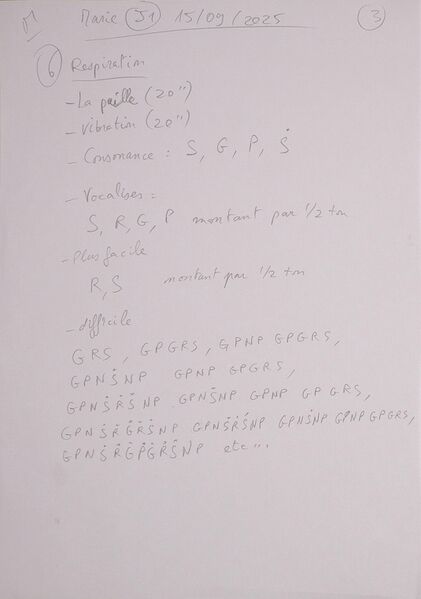 M Marie (J1) 15/09/2025 (3)
(6) Respiration
- La paille (20")
- Vibration (20")
- Consonance : S, G, P, Ṡ
- Vocalises :
S, R, G, P montant par 1/2 ton
- Plus facile
R, S montant par 1/2 ton
- difficile
GRS, GPGRS, GPNP GPGRS,
GPNṠNP GPNP GPGRS,
GPNṠṘṠNP GPNṠNP GPNP GPGRS,
GPNṠṘĠṘṠNP GPNṠṘṠNP GPNṠNP GPNP GPGRS,
GPNṠṘĠṖĠṘṠNP etc...